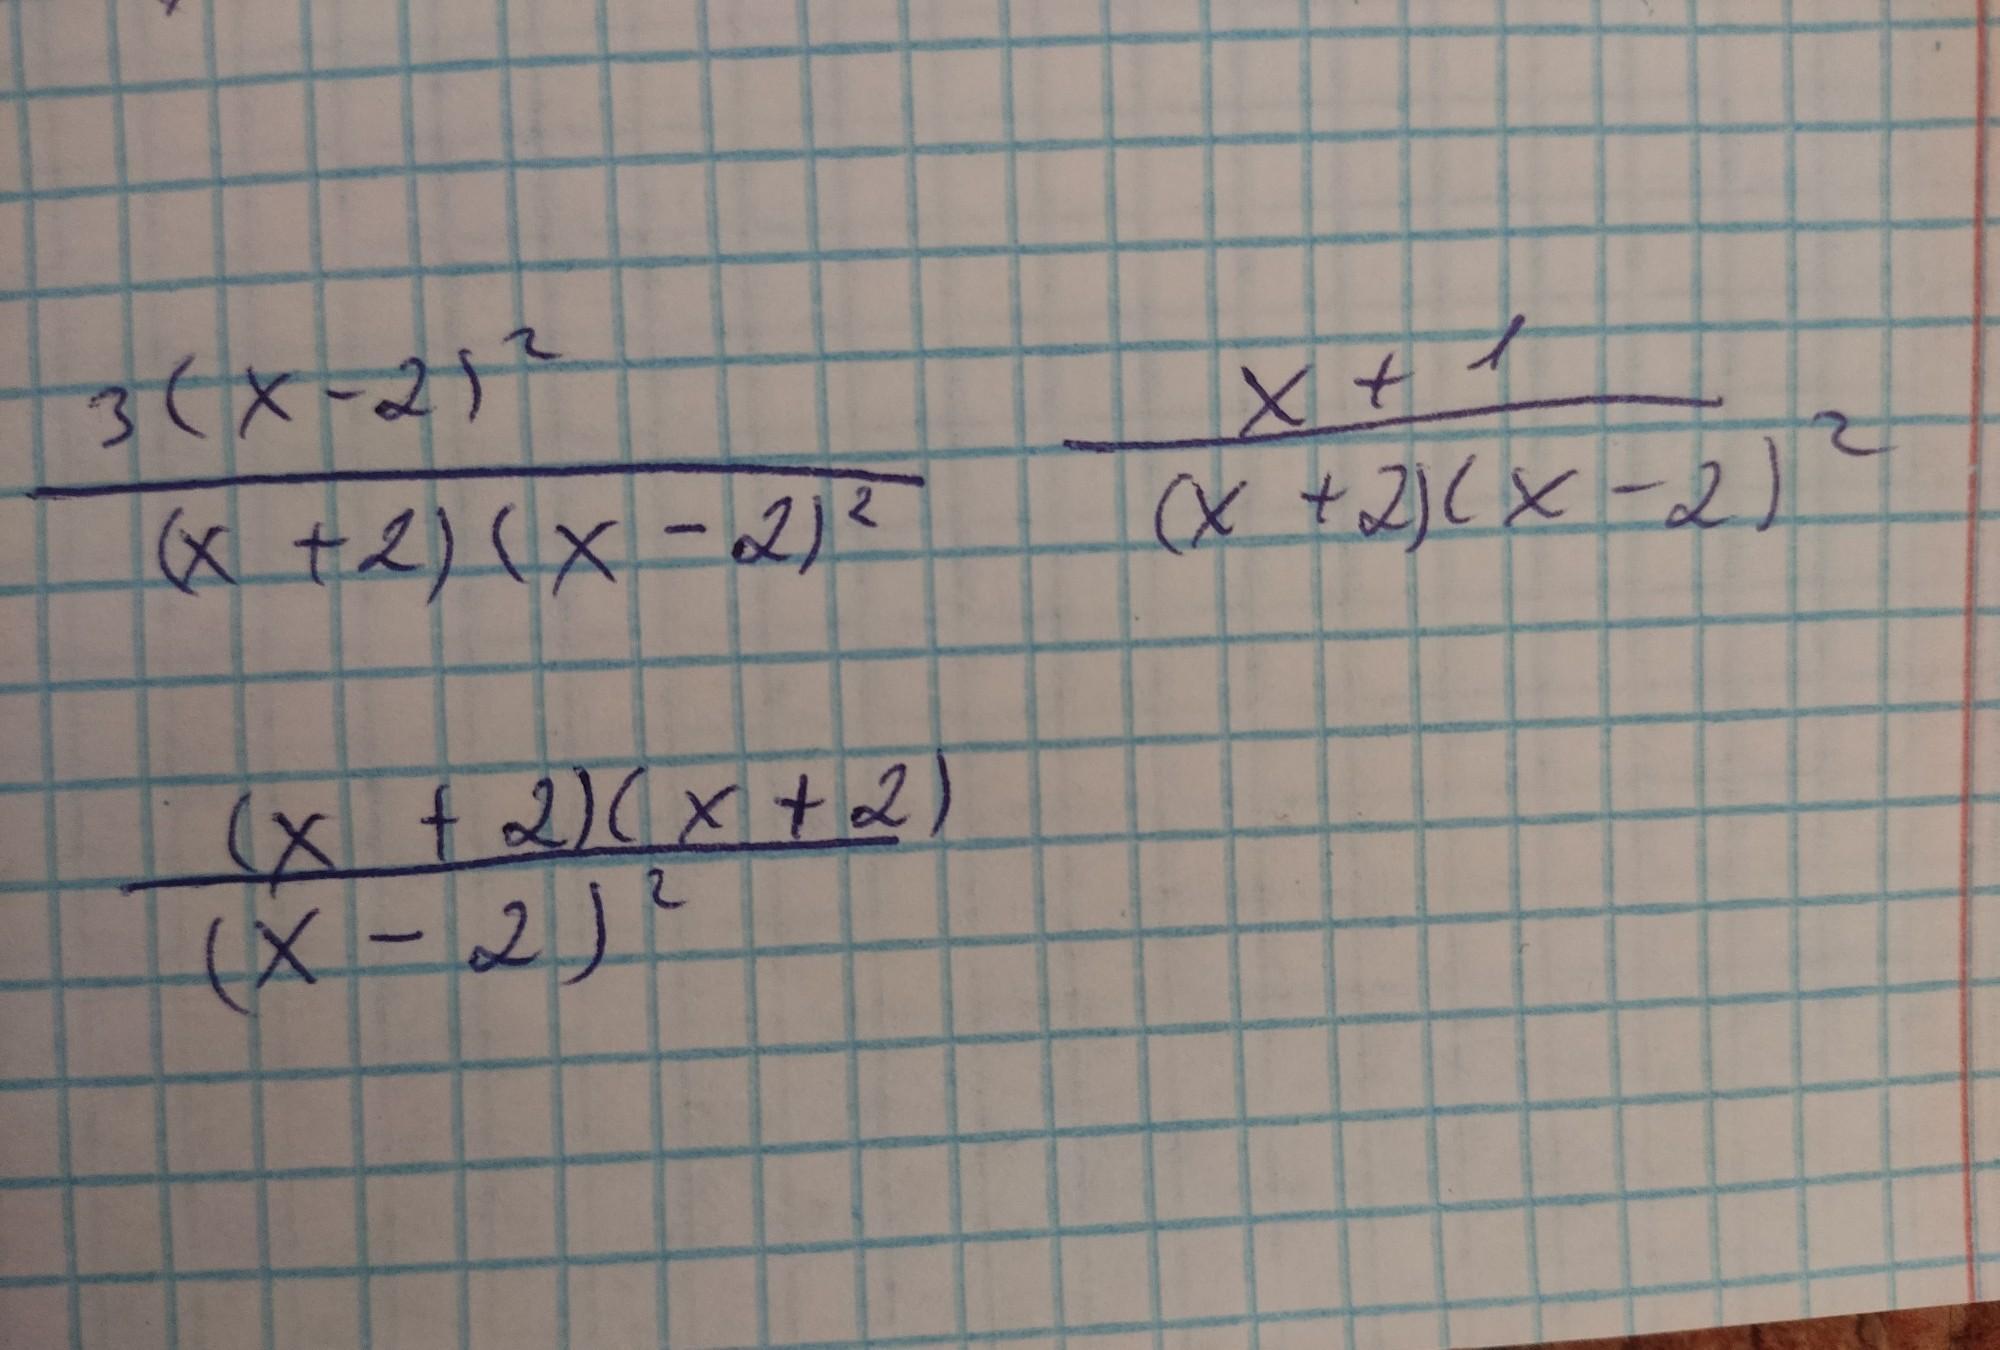 3(x-2)² x+1
(x+2)(x-2)² (x+2)(x-2)²
(x+2)(x+2)
(x-2)²